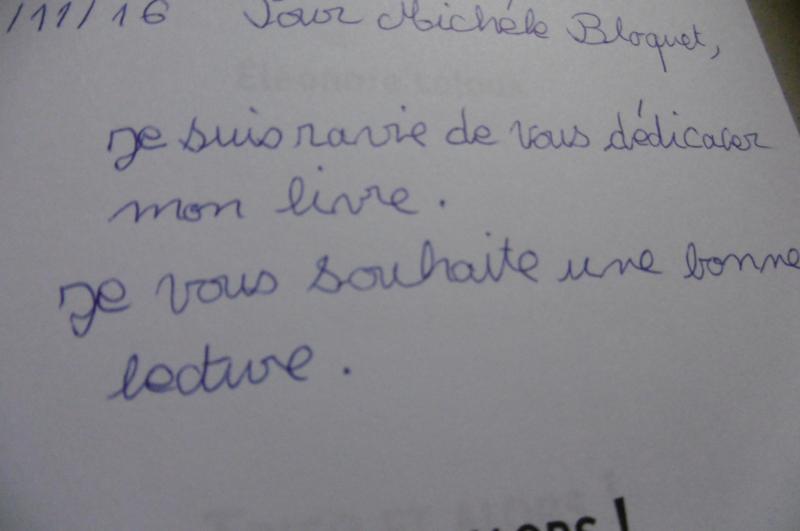 /11/16 Pour Michèle Bloquet,
je suis ravie de vous dédicacer
mon livre.
Je vous souhaite une bonne
lecture.